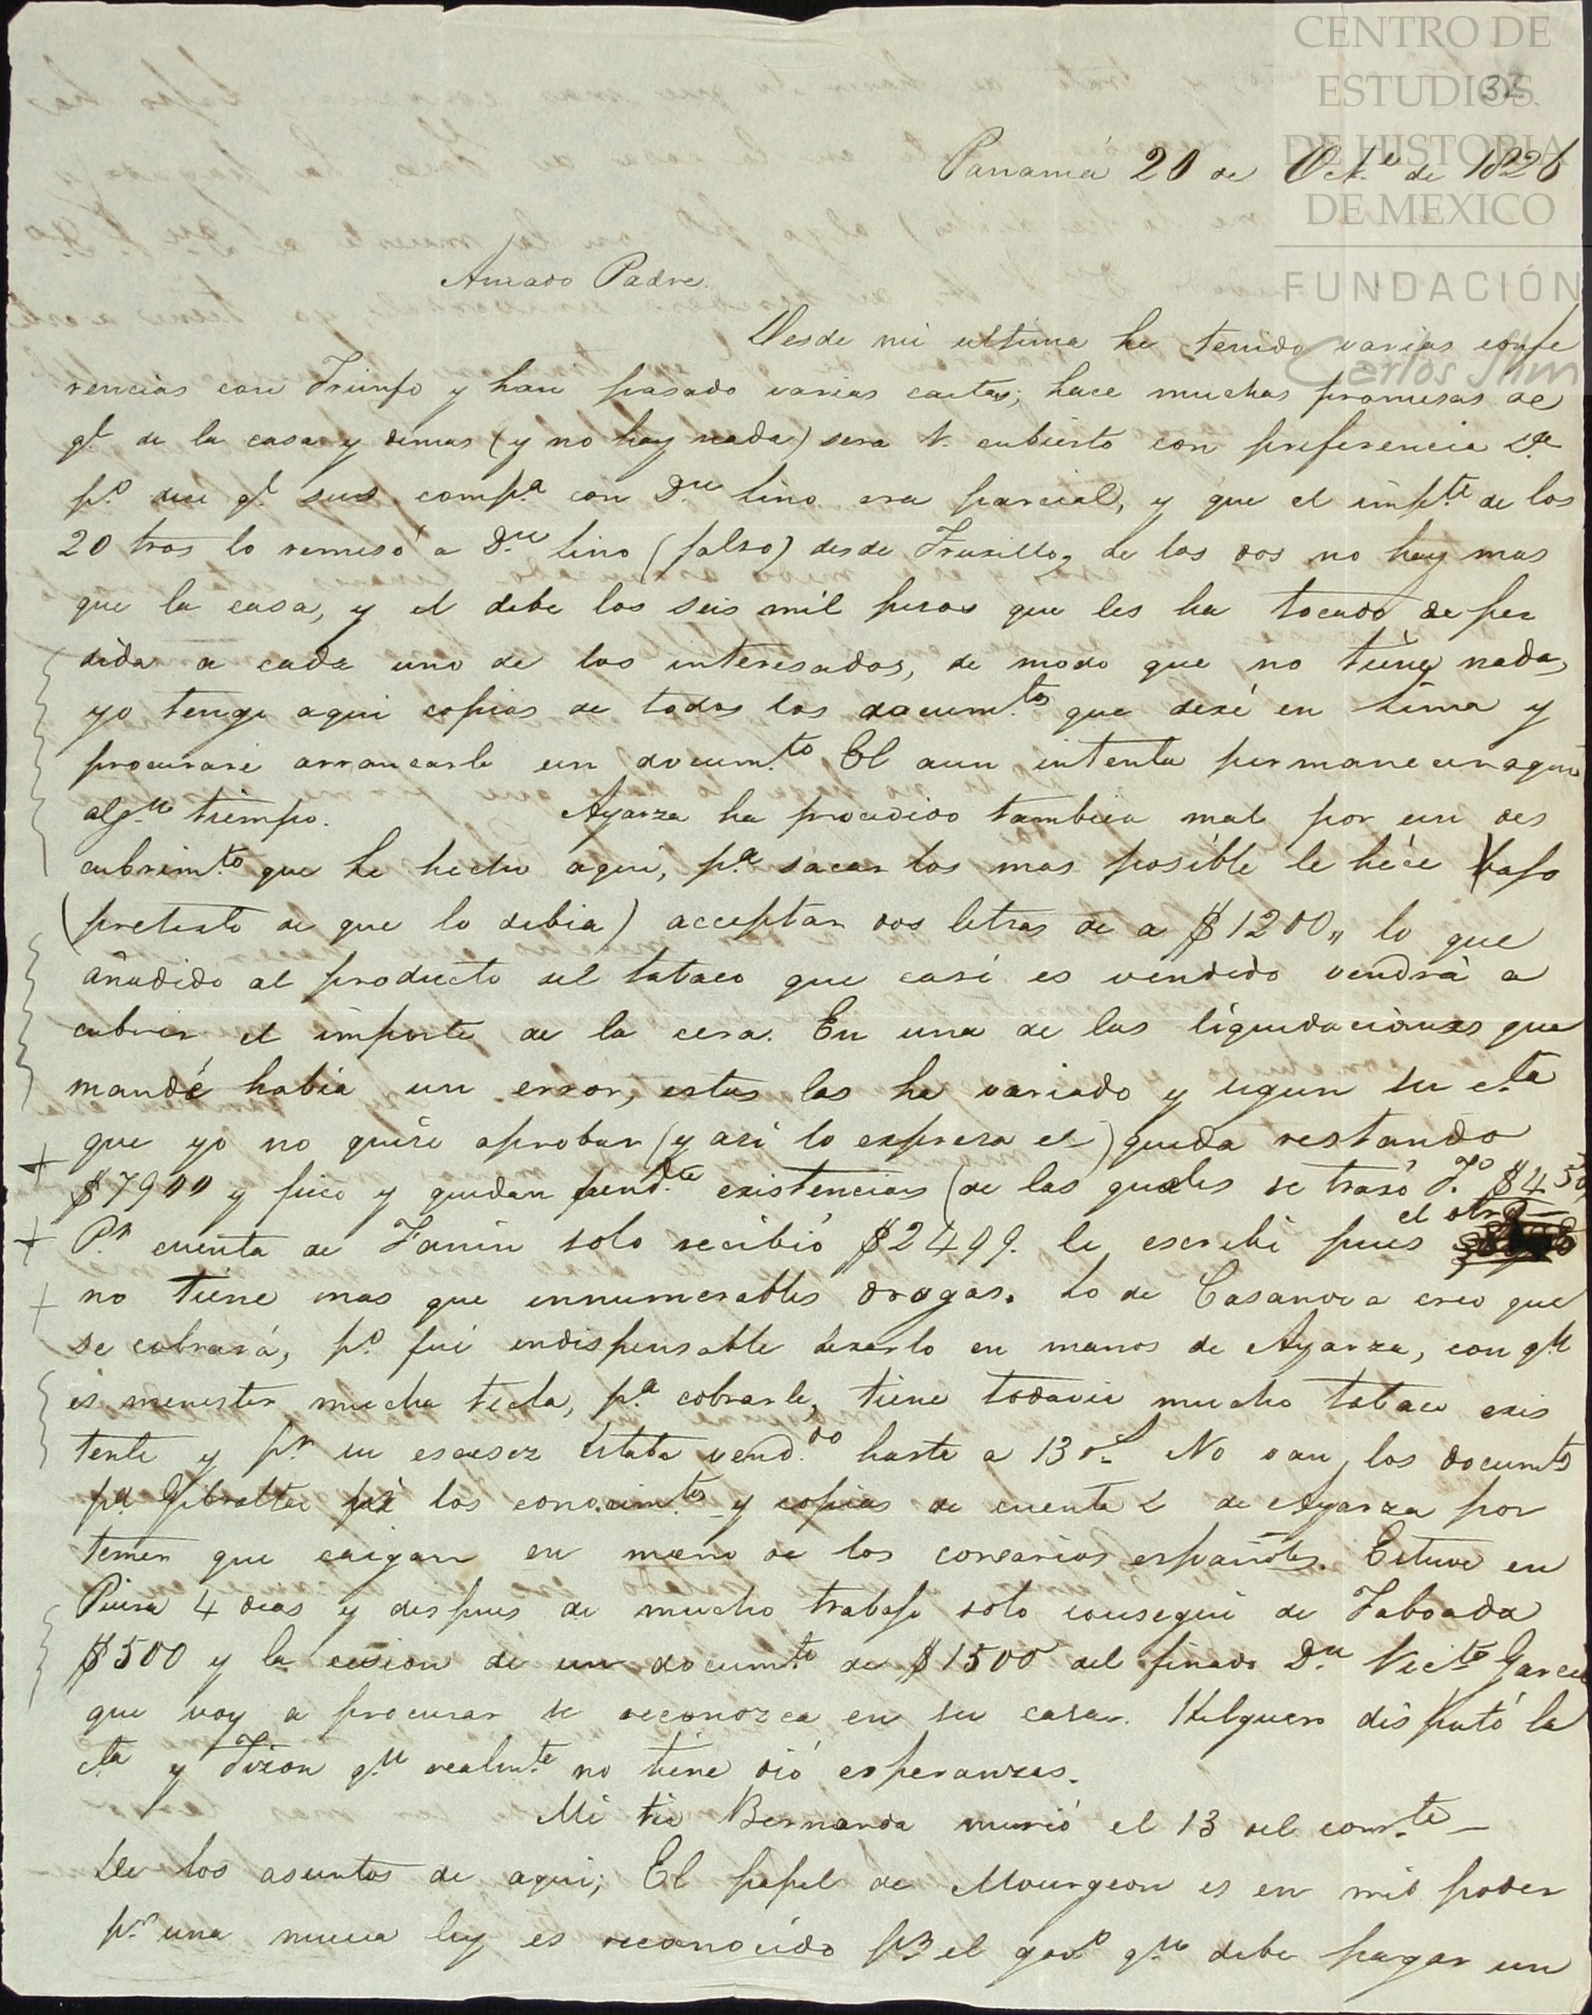 CENTRO DE
ESTUDIOS
DE HISTORIA
DE MEXICO
FUNDACIÓN
Carlos Slim
32
Panamá 20 de Oct.e de 1826
Amado Padre.
Desde mi ultima he tenido varias confe
rencias con Triunfo y han pasado varias cartas; hace muchas promesas de
q.e de la casa y demas (y no hay nada) sera V. cubierto con preferencia
p.o dice q.e sus comp.a con D.n Lino era parcial, y que el imp.te de los
20 tros lo remisó a D.n Lino (falso) desde Truxillo, de los dos no hay mas
que la casa, y el debe los seis mil pesos que les ha tocado de per
dida a cada uno de los interesados, de modo que no tiene nada,
yo tengo aqui copias de todos los docum.tos que dexé en Lima y
procuraré arrancarle un docum.to El aun intenta permanecer aqui
alg.n tiempo. Ayarza ha procedido tambien mal por un des
cubrim.to que he hecho aqui, p.a sacar los mas posible le hice bajo
(pretexto de que lo debia) acceptar dos letras de a $1200,, lo que
añadido al producto del tabaco que casi es vendido vendrá a
cubrir el importe de la cera. En una de las liquidaciones que
mandé habia un error, estas las ha variado y segun su c.ta
que yo no quise aprobar (y asi lo expresa el) queda restando
$7900 y pico y quedan pend.te existencias (de las quales se traxó J.o $450
P.r cuenta de Fanin solo recibió $2499. le escribi pues el otro
no tiene mas que innumerables drogas. Lo de Casanova creo que
se cobrará, p.o fué indispensable dexarlo en manos de Ayarza, con q.n
es menester mucha tecla, p.a cobrarle, tiene todavia mucho tabaco exis
tente y p.r su escasez estaba vend.do hasta a 13 r.s No van los docum.tos
p.a Gibraltar los conocim.tos y copias de cuenta de Ayarza por
temer que caigan en mano de los corsarios españoles. Estuve en
Piura 4 dias y despues de mucho trabajo solo consegui de Taboada
$500 y la cesion de un docum.to de $1500 del finado D.n Vic.te Garcia
que voy a procurar se reconozca en su casa. Helguero disputó la
c.ta y Tizon q.n realm.te no tiene dió esperanzas.
Mi tia Bernarda murió el 13 del corr.te
De los asuntos de aqui; El papel de Mourgeon es en mis poder
p.r una nueva ley es reconocido p.r el gov.o q.n debe pagar un